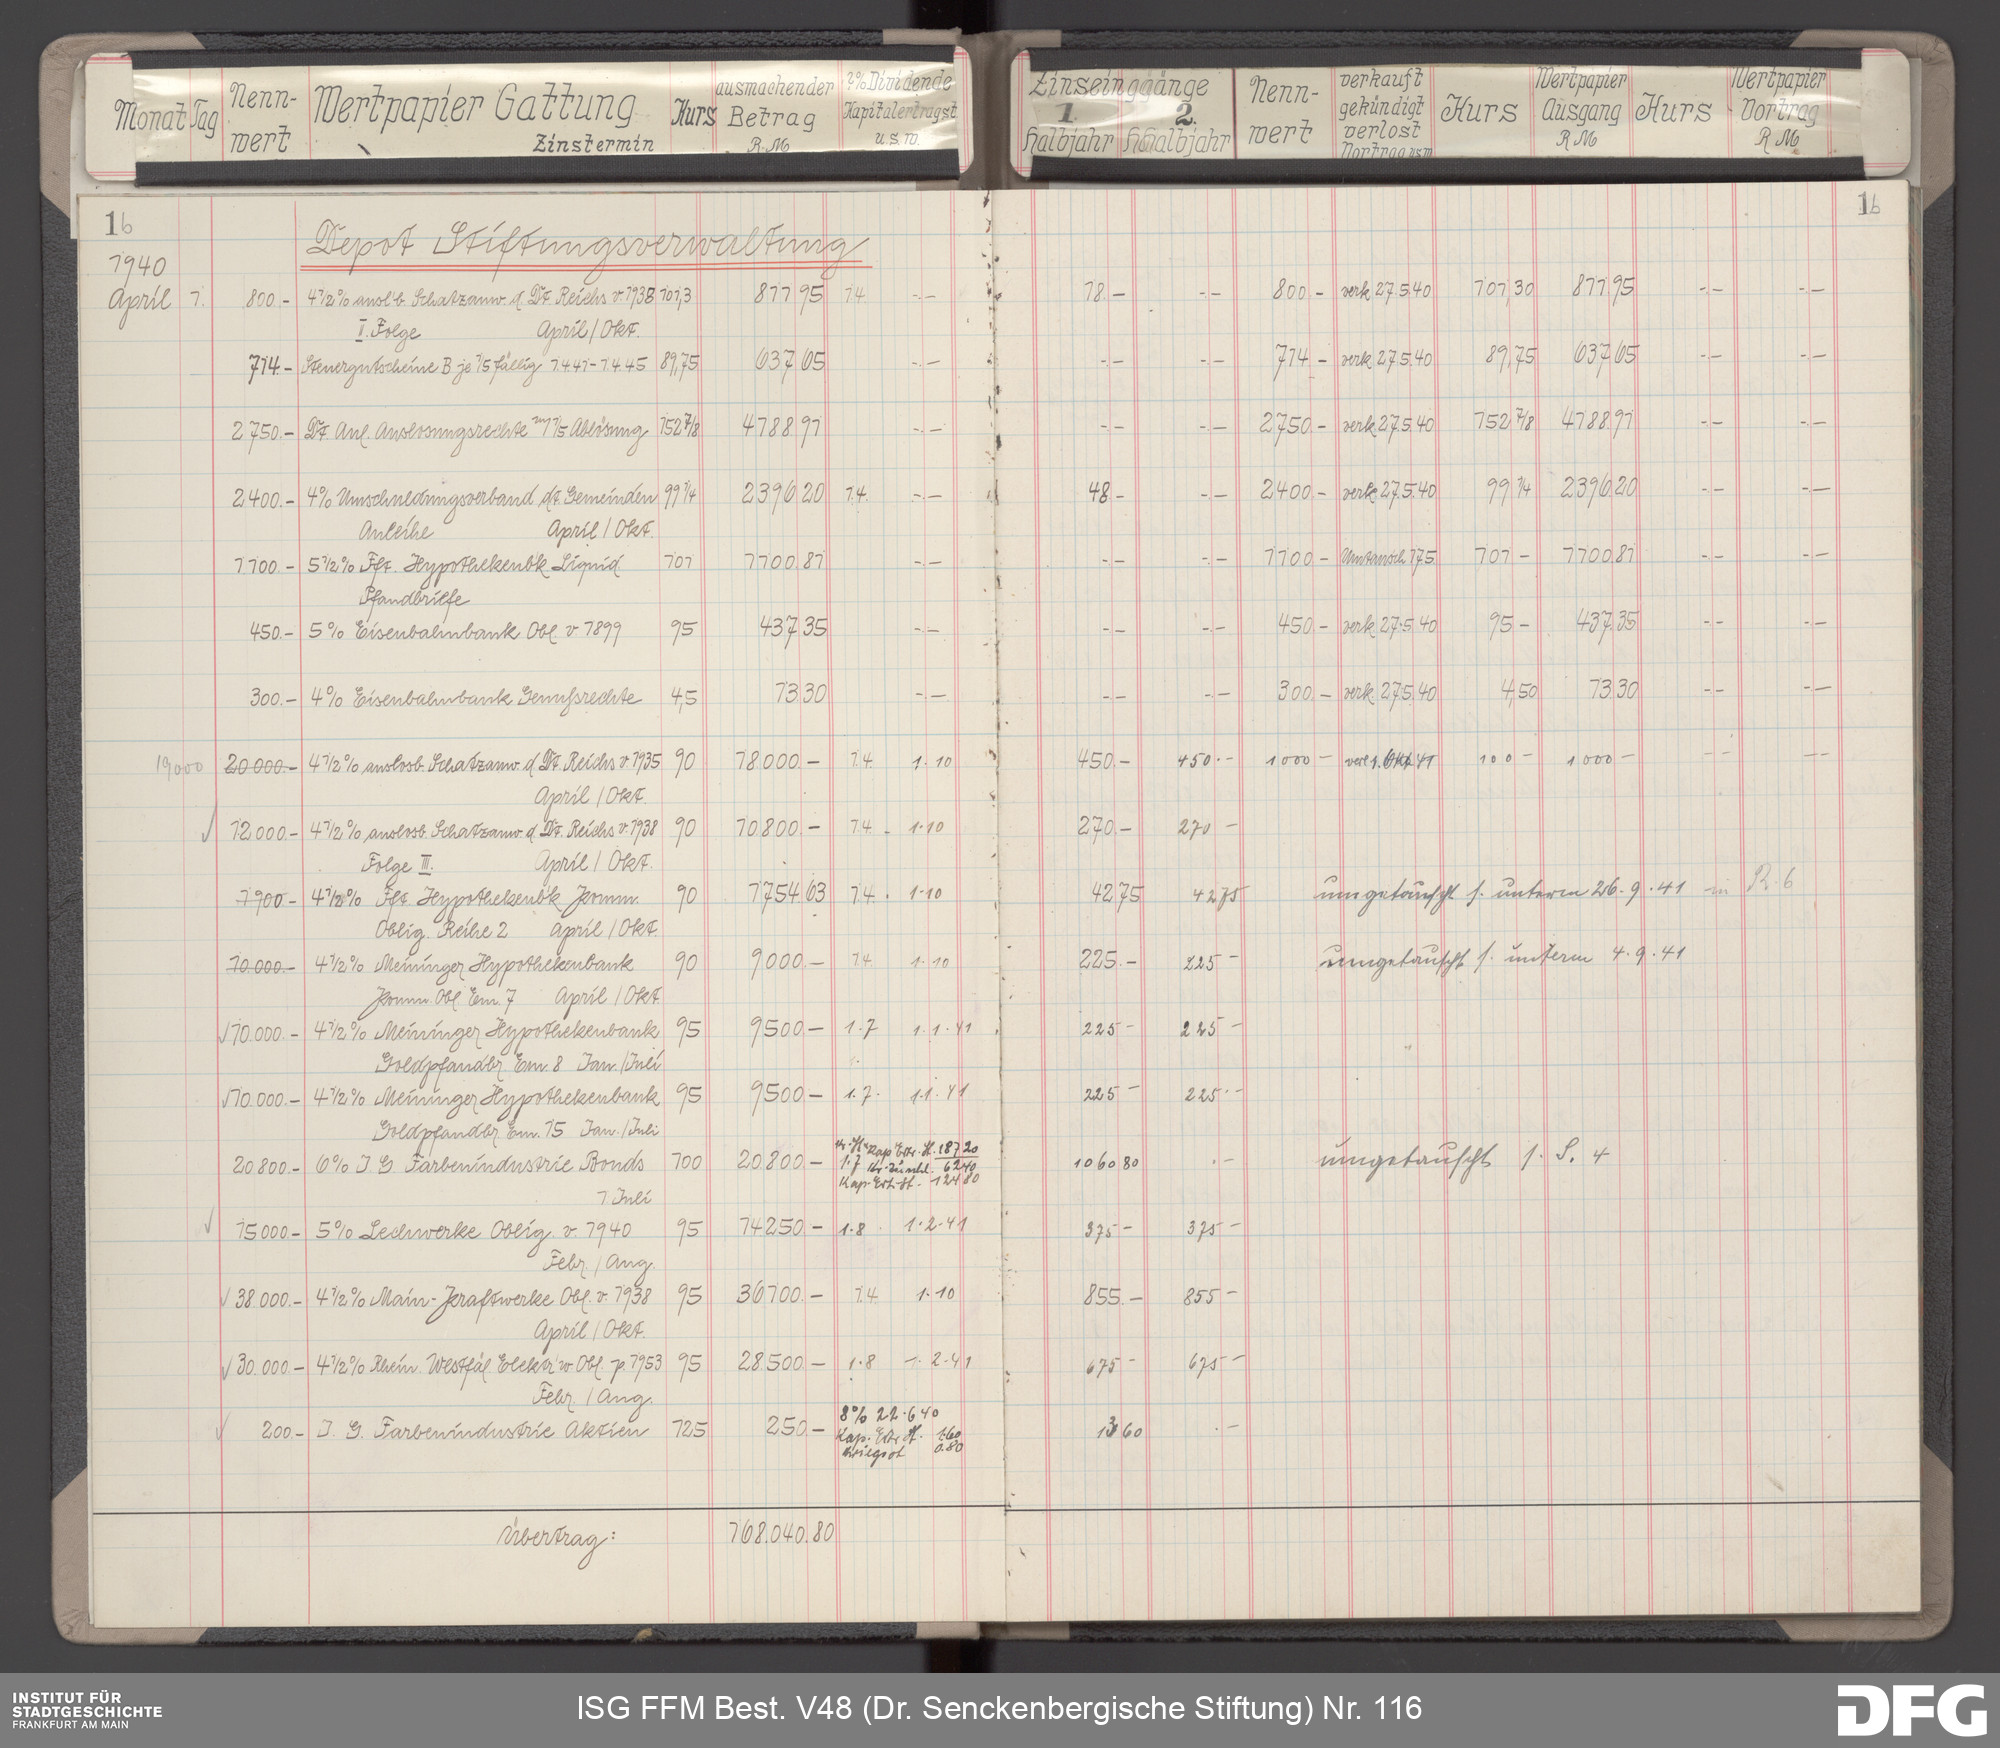 Monat Tag Nenn-wert Wertpapier Gattung Zinstermin Kurs ausmachender Betrag R.M. 2% Dividende Kapitalertragst. u.s.w. Zinseingänge 1. Halbjahr 2. Halbjahr Nenn-wert verkauft gekündigt verlost Vortrag usw Kurs Wertpapier Ausgang R M Kurs Wertpapier Vortrag R M
16 16
Depot Stiftungsverwaltung
1940
April 1. 800.- 4 1/2% ausl'b. Schatzanw. d. Dt. Reichs v. 1938 101,3 811 95 1.4. -.- 18.- -.- 800 - verk 27.5.40 101,30 811 95 -.- -.-
II. Folge April / Okt.
714.- Steuergutscheine B je 1/5 fällig 1.4.41 - 1.4.45 89,75 637 65 -.- -.- -.- 714 - verk 27.5.40 89,75 637 65 -.- -.-
2 750.- Dt. Anl. Auslosungsrechte 1/5 Ablösung 152 7/8 4188 91 -.- -.- -.- 2750.- verk. 27.5.40 152 7/8 4188 91 -.- -.-
2 400.- 4% Umschuldungsverband dt. Gemeinden 99 1/4 2396 20 1.4. -.- 48 - -.- 2400 - verk. 27.5.40 99 1/4 2396 20 -.- -.-
Anleihe April / Okt.
1 100.- 5 1/2% Fft. Hypothekenb'k Liquid 101 1100 81 -.- -.- -.- 1100 - Umtausch 17.5. 101 - 1100 81 -.- -.-
Pfandbriefe
450.- 5% Eisenbahnbank Obl v 1899 95 437 35 -.- -.- -.- 450 - verk. 27.5.40 95 - 437 35 -.- -.-
300.- 4% Eisenbahnbank Genußrechte 4,5 13 30 -.- -.- -.- 300 - verk. 27.5.40 4,50 13 30 -.- -.-
19000 20 000.- 4 1/2% auslosb. Schatzanw. d Dt. Reichs v 1935 90 18 000.- 1.4. 1.10 450.- 450.- 1000 - verl 1. Okt 41 100 - 1000 - -- --
April / Okt.
12 000.- 4 1/2% auslosb. Schatzanw. d. Dt. Reichs v. 1938 90 10 800.- 1.4. 1.10 270.- 270 -
Folge III. April / Okt.
1 900 - 4 1/2% Fft. Hypothekenb'k Komm. 90 1 754 63 1.4. 1.10 42 75 42 75 umgetauscht s. unterm 26.9.41 in R. 6
Oblig. Reihe 2 April / Okt.
10.000.- 4 1/2% Meininger Hypothekenbank 90 9000.- 1.4 1.10 225.- 225 - umgetauscht s. unterm 4.9.41
Komm. Obl. Em. 7 April / Okt
10.000.- 4 1/2% Meininger Hypothekenbank 95 9500 - 1.7 1.1.41 225 - 225 -
Goldpfandbr Em. 8 Jan. / Juli
10.000.- 4 1/2% Meininger Hypothekenbank 95 9500 - 1.7. 1.1.41 225 - 225.-
Goldpfandbr Em. 15 Jan. / Juli
20 800.- 6% I G Farbenindustrie Bonds 100 20 800.- 1.7 Kap Ertr. St. 187 20 62 40 Kap. Ert. St. 124 80 1060 80 .- umgetauscht s. S. 4
1. Juli
15 000.- 5% Lechwerke Oblig. v. 1940 95 14 250 - 1.8 1.2.41 375 - 375 -
Febr. / Aug.
38.000.- 4 1/2% Main-Kraftwerke Obl. v. 1938 95 36 100.- 1.4 1.10 855.- 855 -
April / Okt.
30.000.- 4 1/2% Rhein. Westfäl Elektr w Obl. p. 1953 95 28.500.- 1.8 1.2.41 675 - 675 -
Febr. / Aug.
200.- I. G. Farbenindustrie Aktien 125 250.- 8% 22.6.40 Kap. Ertr. St. 1.60 0.80 13 60 .-
Übertrag: 168.040.80
INSTITUT FÜR
STADTGESCHICHTE
FRANKFURT AM MAIN
ISG FFM Best. V48 (Dr. Senckenbergische Stiftung) Nr. 116
DFG